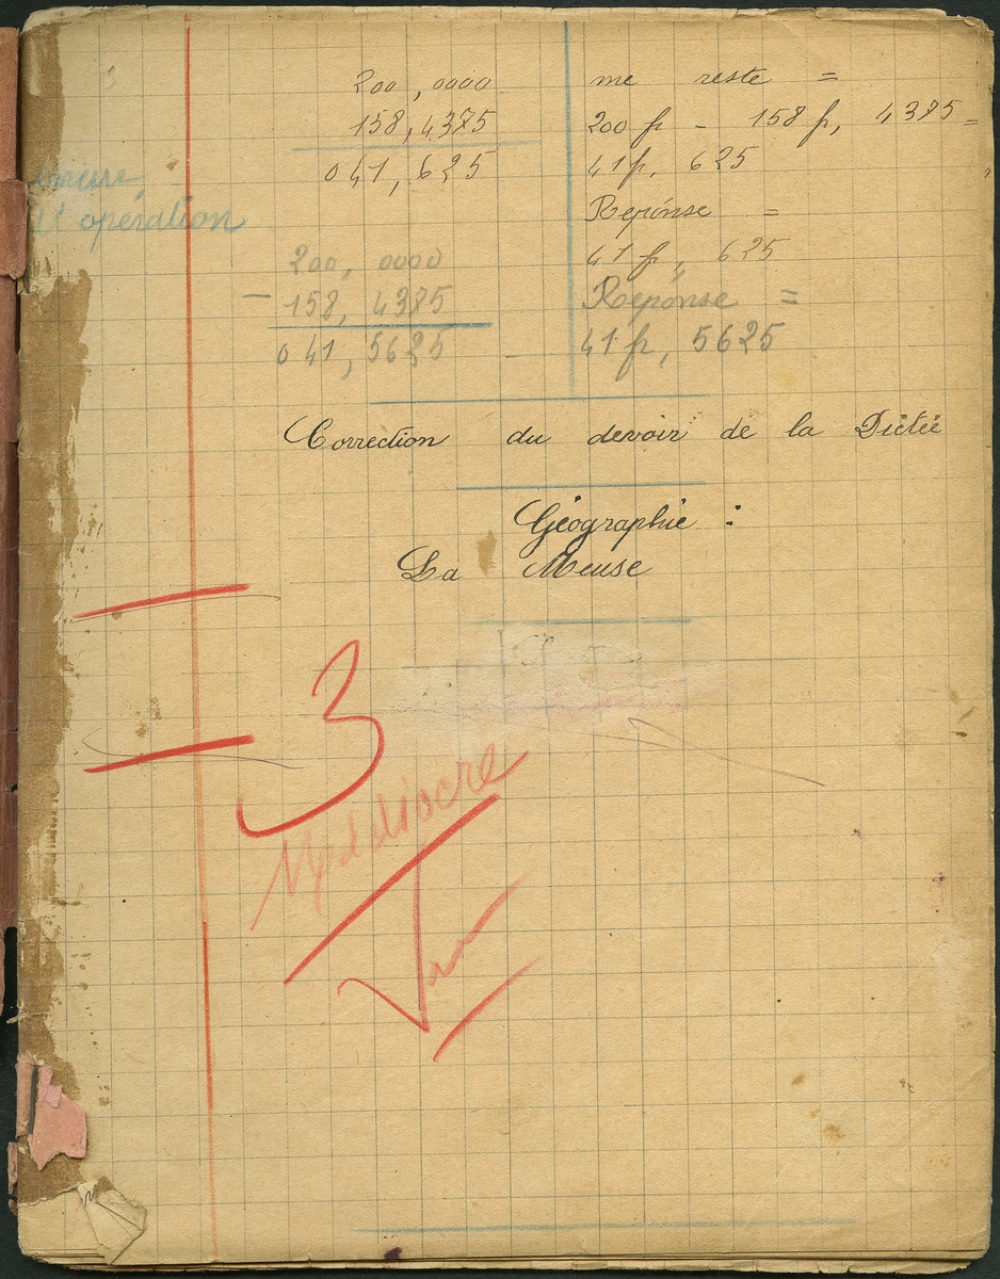 200,0000
158,4375
041,625
me reste =
200 fr - 158 fr, 4375 =
41 fr, 625
Reponse =
41 fr, 625
Reponse =
41 fr, 5625
opération
200, 0000
- 158, 4375
041, 5625
Correction du devoir de la Dictée
Géographie :
La Meuse
3
Médiocre